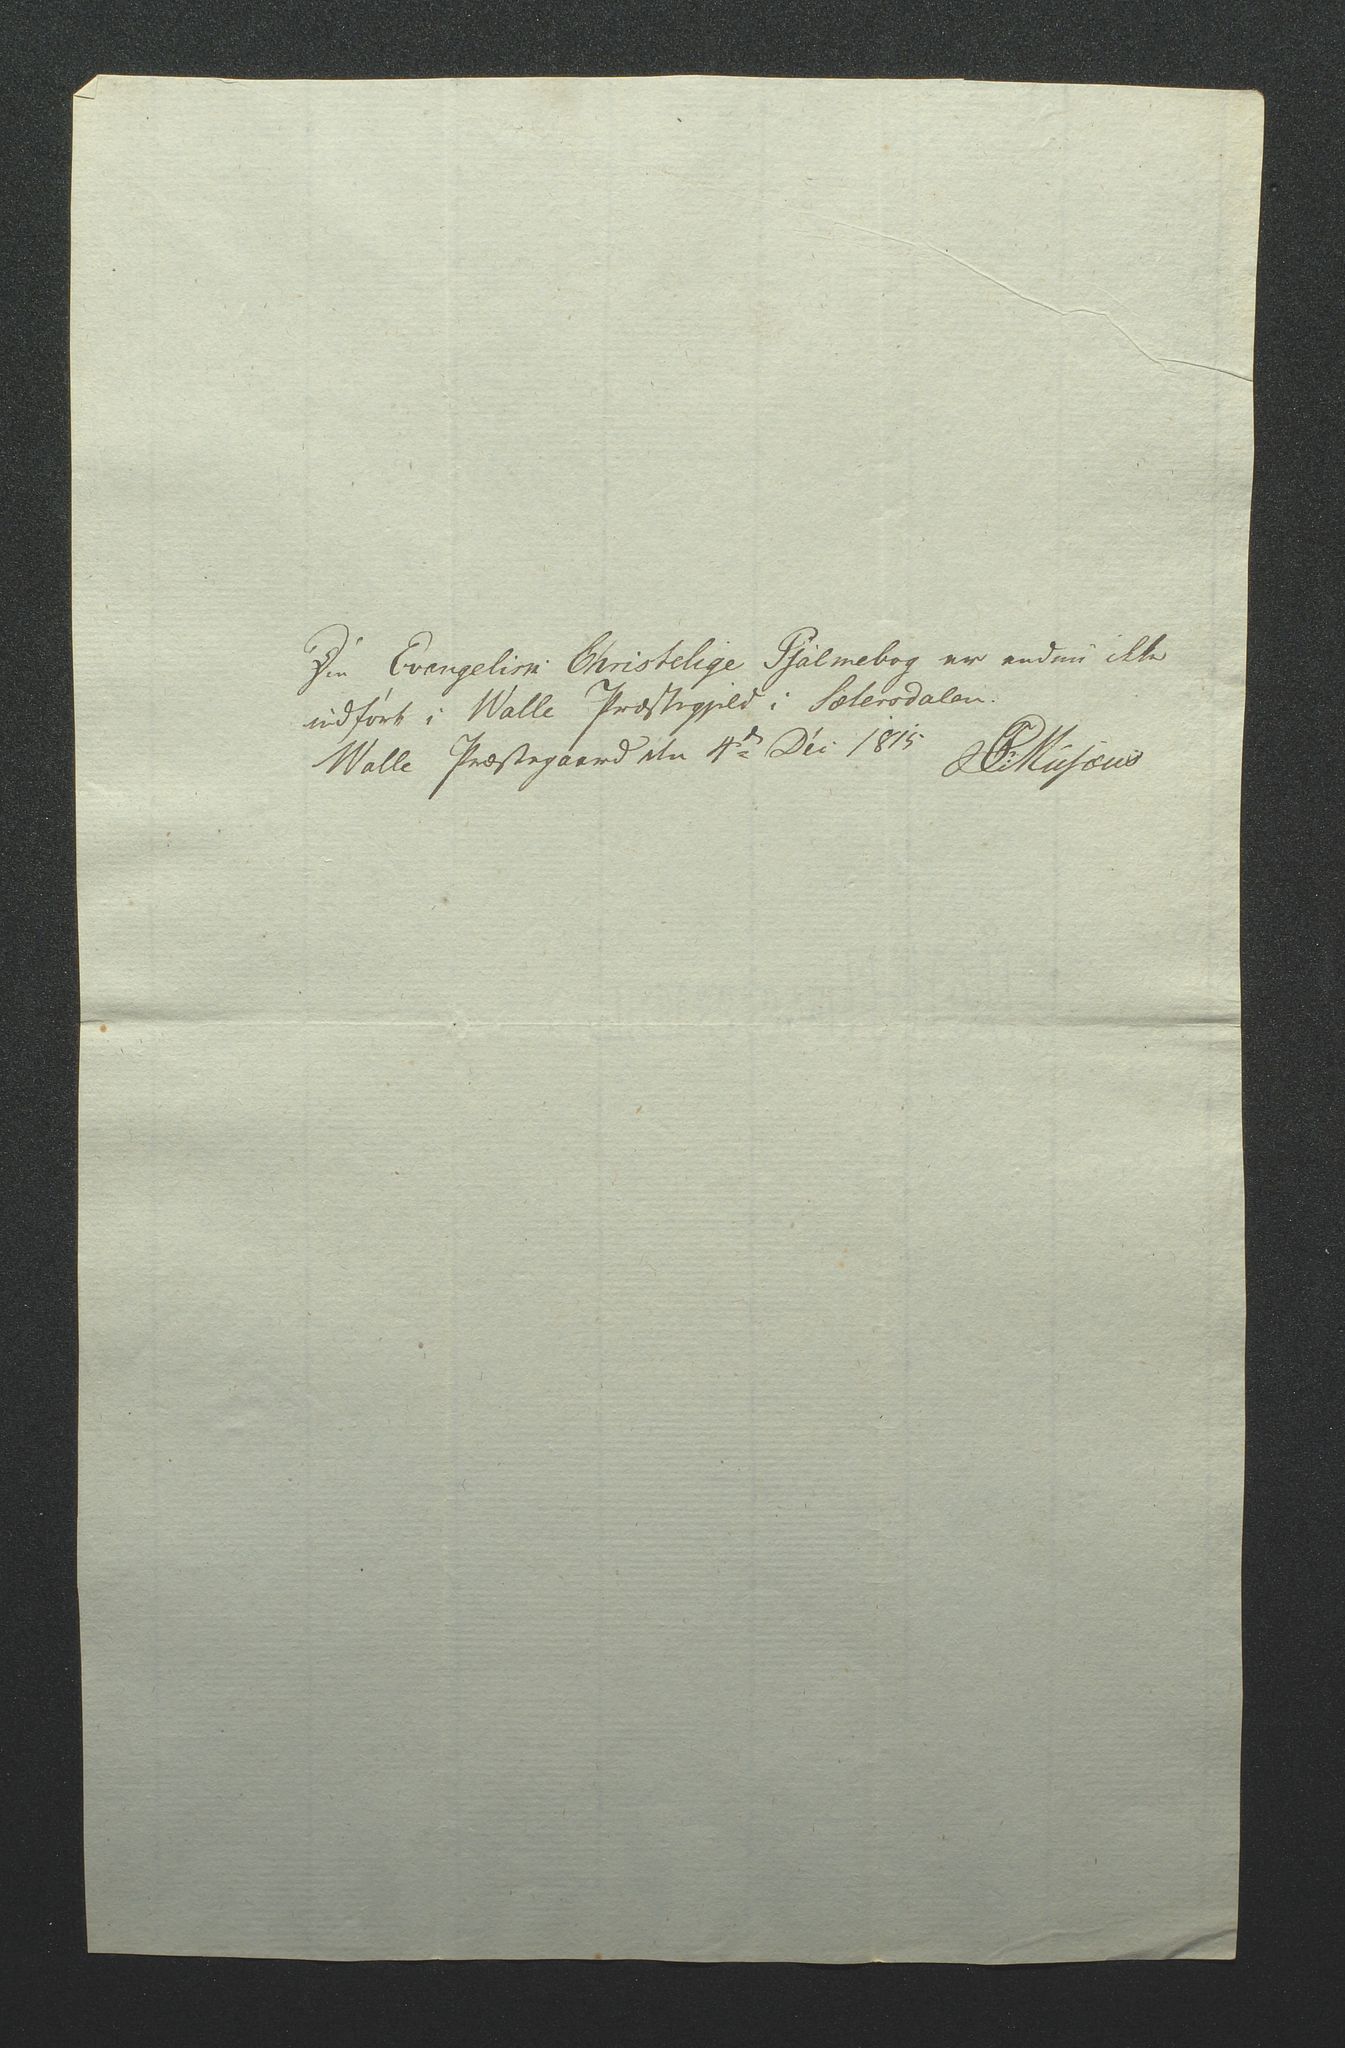 Den Evangelisk Christelige Psalmebog er endnu ikke
indført i Walle Præstegjeld i Sætersdalen.
Walle Præstegaard den 4de Dec 1815
Musæus